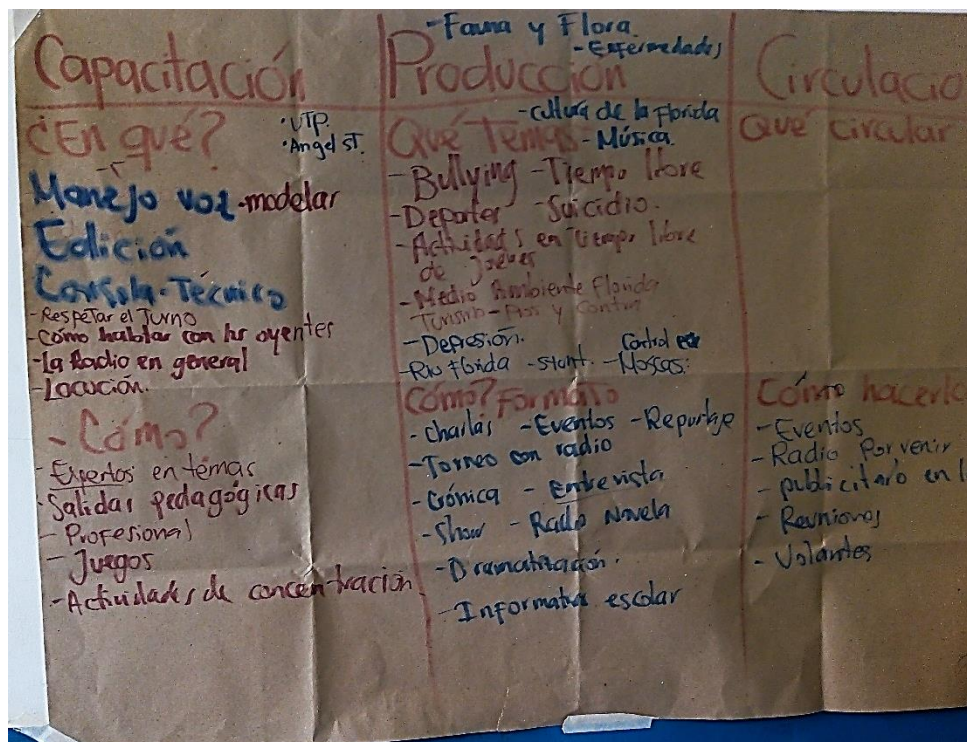 Capacitación
¿En qué?
·UTP.
·Angel ST.
Manejo voz-modelar
Edición
Consola-Técnico
-Respetar el Turno
-Cómo hablar con los oyentes
-La Radio en general
-Locución.
-Cómo?
-Expertos en temas
-Salidas pedagógicas
-Profesional
-Juegos
-Actividades de concentración
-Fauna y Flora.
-Enfermedades
Producción
-cultura de la Florida
Qué Temas -Música.
-Bullying -Tiempo libre
-Deportes -Suicidio.
-Actividades en tiempo libre
de jóvenes
-Medio Ambiente Florida
Turismo-Pros y Contra
-Depresión.
Control
-Rio Florida -stunt. -Moscas.
Cómo? Formato
-Charlas -Eventos -Reportaje
-Torneo con radio
-Crónica -Entrevista
-Show -Radio Novela
-Dramatización.
-Informativo escolar
Circulacio
Qué circular
Cómo hacerlo
-Eventos
-Radio Porvenir
-publicitario en l
-Reuniones
-Volantes